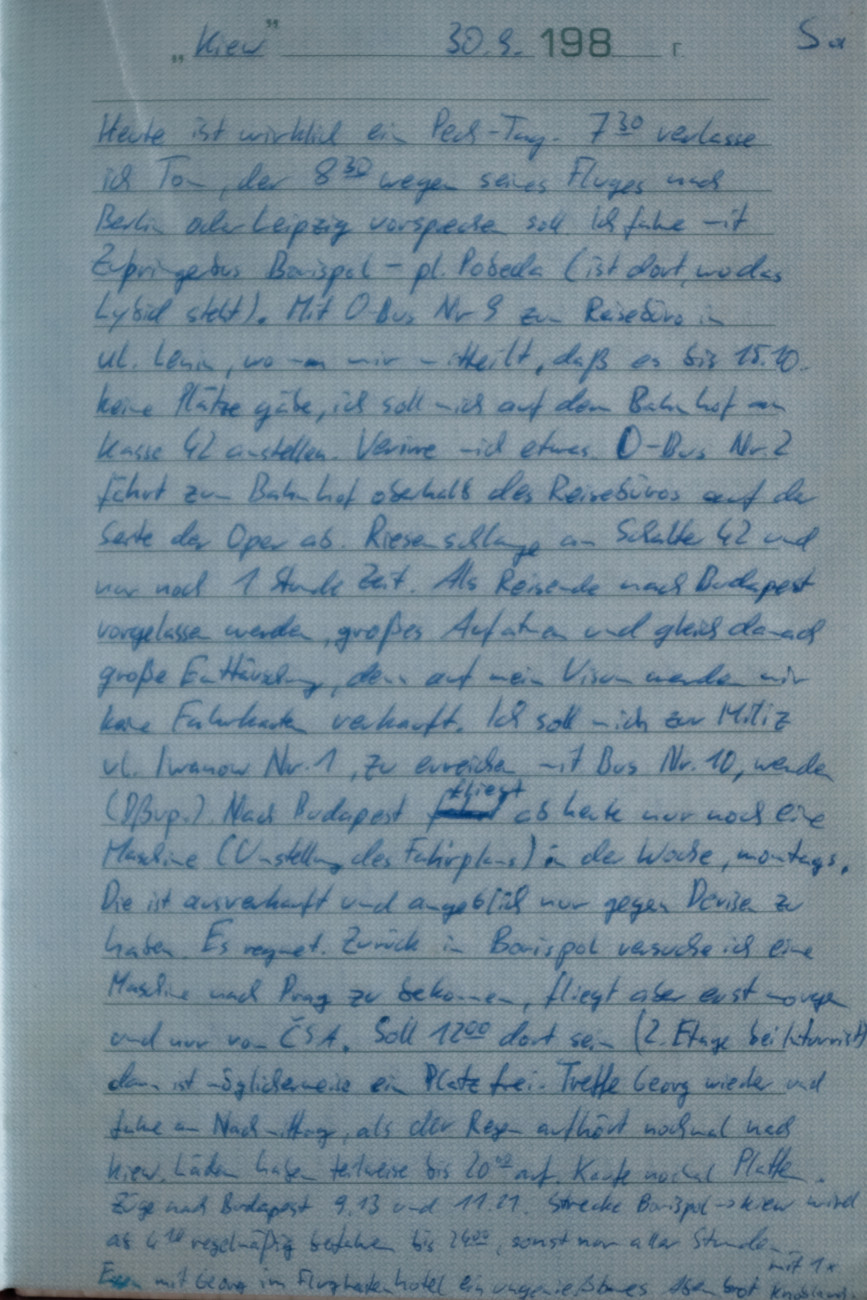 „Kiew" 30.9. 198 г. Sa
Heute ist wirklich ein Pech-Tag. 7 30 verlasse
ich Tom, der 8 30 wegen seines Fluges nach
Berlin oder Leipzig vorsprechen soll ich fahre mit
Zubringerbus Borispol - pl. Pobeda (ist dort, wo das
Lybid steht). Mit O-Bus Nr 9 zum Reisebüro in
ul. Lenin, wo man mir mitteilt, daß es bis 15.10.
keine Plätze gäbe, ich soll mich auf dem Bahnhof an
Kasse 42 anstellen. Verirre mich etwas. O-Bus Nr. 2
fährt zum Bahnhof oberhalb des Reisebüros auf der
Seite der Oper ab. Riesenschlange am Schalter 42 und
nur noch 1 Stunde Zeit. Als Reisende nach Budapest
vorgelassen werden, großes Aufatmen und gleich danach
große Enttäuschung, denn auf mein Visum werden mir
keine Fahrkarten verkauft. Ich soll mich zur Miliz
ul. Iwanow Nr. 1, zu erreichen mit Bus Nr. 10, wenden
Nach Budapest fliegt ab heute nur noch eine
Maschine (Umstellung des Fahrplans) in der Woche, montags.
Die ist ausverkauft und angeblich nur gegen Devisen zu
haben. Es regnet. Zurück in Borispol versuche ich eine
Maschine nach Prag zu bekommen, fliegt aber erst morgen
und nur von ČSA. Soll 12 00 dort sein (2. Etage bei Intourist)
dann ist möglicherweise ein Platz frei. Treffe Georg wieder und
fahre am Nachmittag, als der Regen aufhört nochmal nach
Kiew. Läden haben teilweise bis 20 00 auf. Kaufe nochmal Platten.
Züge nach Budapest 9.13 und 11.21. Strecke Borispol → Kiew wird
ab 4 10 regelmäßig befahren bis 24 00, sonst nur aller Stunde.
mit 1x
Essen mit Georg im Flughafenhotel ein ungenießbares Abendbrot